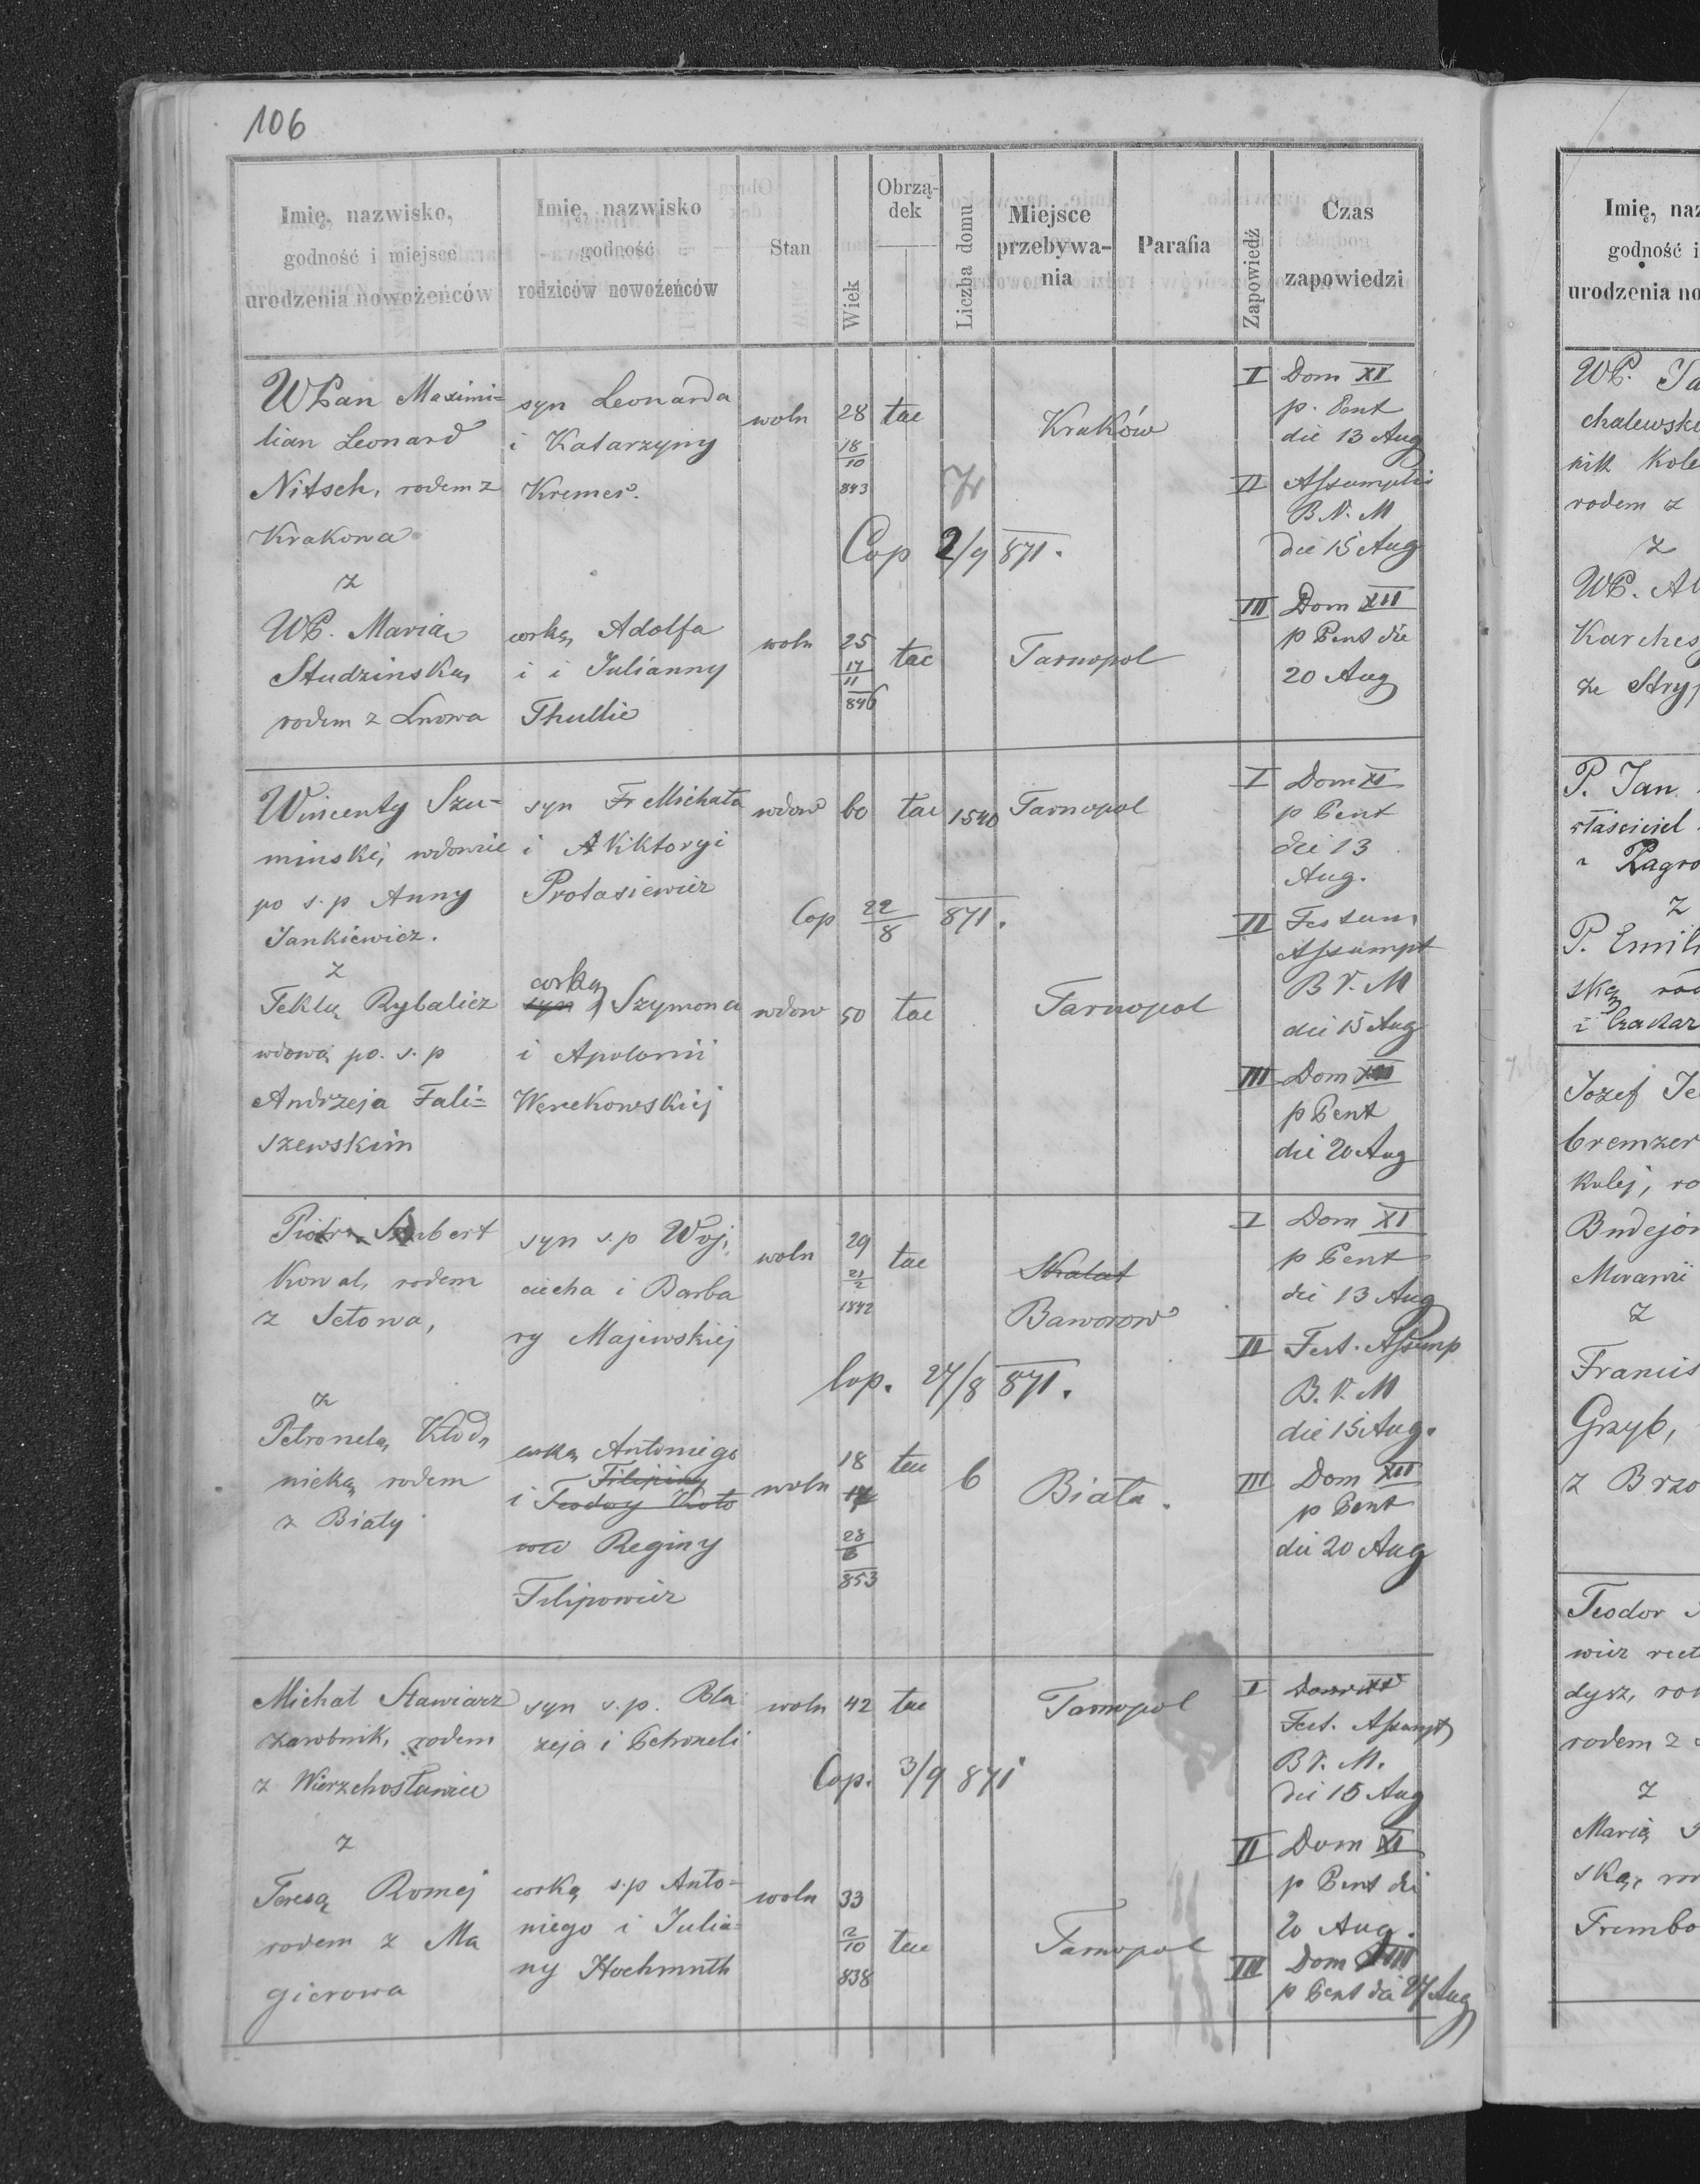 106
Imię, nazwisko,
godność i miejsce
urodzenia nowożeńców
Imię, nazwisko
godność
rodziców nowożeńców
Stan
Wiek
Obrzą-
dek
Liczba domu
Miejsce
przebywa-
nia
Parafia
Zapowiedź
Czas
zapowiedzi
WPan Maximi=
lian Leonard
Nitsch, rodem z
Krakowa
z
WP. Marią
Studzinską,
rodem z Lwowa
syn Leonarda
i Katarzyny
Kremer.
corką Adolfa
i i Julianny
Thullie
woln
28
18
10
843
tac
Kraków
Cop 2/9 871.
woln
25
17
11
846
tac
Tarnopol
I Dom XI
p. Pent
die 13 Aug
II Assumptio
B.V.M
die 15 Aug
III Dom XII
p Pent die
20 Aug
Wincenty Szu=
minski, wdowiec
po s.p Anny
Jankiewicz.
z
Teklą Rybalicz
wdową po. s.p
Andrzeja Fali=
szewskim
syn Fr Michała
i Wiktoryi
Protasiewicz
corką
syn Szymona
i Apolonii
Werekowskiej
wdow
60
tac
1540
Tarnopol
Cop 22/8 871.
wdow
50
tac
Tarnopol
I Dom XI
p Pent
die 13
Aug.
II Festum
Assumpt
B V. M
die 15 Aug
III Dom XII
p Pent
die 20 Aug
Piotr Szubert
Kowal, rodem
z
z
Petronelą Kłod,
nicką rodem
z Biały
syn s.p Woj,
ciecha i Barba
ry Majewskiej
corką Antoniego
Filipiny
i Teodory
Reginy
Filipowicz
woln
29
21
2
1842
tac
Skalat
Baworow
Cop. 27/8 871.
woln
18
17
28
6
853
tac
6
Biała.
I Dom XI
p Pent
die 13 Aug
II Fest. Assump
B.V.M
die 15 Aug.
III Dom XII
p Pent
die 20 Aug
Michał Stawiarz
zarobnik, rodem
z Wierzchosławice
z
Teresą Romej
rodem z Ma
gierowa
syn s.p. Bła
żeja i Petroneli
corką s.p Anto=
niego i Julia=
ny Hochmuth
woln
42
tac
Tarnopol
Cop. 3/9 871
woln
33
2
10
838
tac
Tarnopol
I
Fest. Assumpt
B V. M.
die 15 Aug
II Dom XI
p Pent die
20 Aug.
III Dom XIII
p Pent die 27 Aug
Imię, naz
godność i
urodzenia no
WP. Ja
chalewski
nik Kole
rodem z
z
WP. Al
Karches
ze Stry
P. Jan
właściciel
z Zagro
z
P. Emili
ską rod
Jozef Je
bremzer
kolej, ro
Budejow
Morawii
z
Francis
Grzyb,
z Brzo
Teodor
wicz
rodem z
z
Marią
ską, ro
Trembo